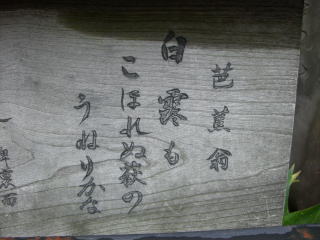 芭蕉翁
白露も
こほれぬ萩の
うねりかな